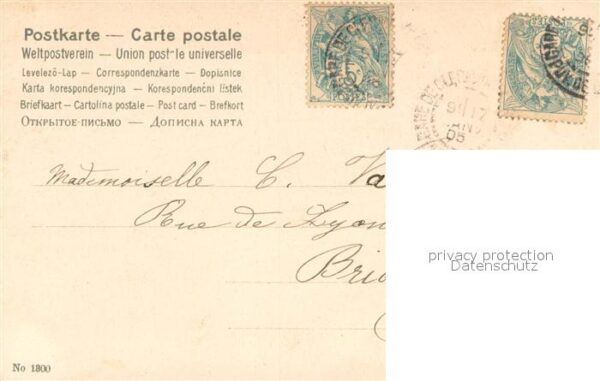 Postkarte — Carte postale
Weltpostverein — Union postale universelle
Levelező-Lap — Correspondenzkarte — Dopisnice
Karta korespondencyjna — Korespondenční lístek
Briefkaart — Cartolina postale — Post card — Brefkort
Открытое-письмо — Дописна карта
Mademoiselle C. Va
Rue de Lyon
Brio
privacy protection
Datenschutz
No 1300
5
9 17
05